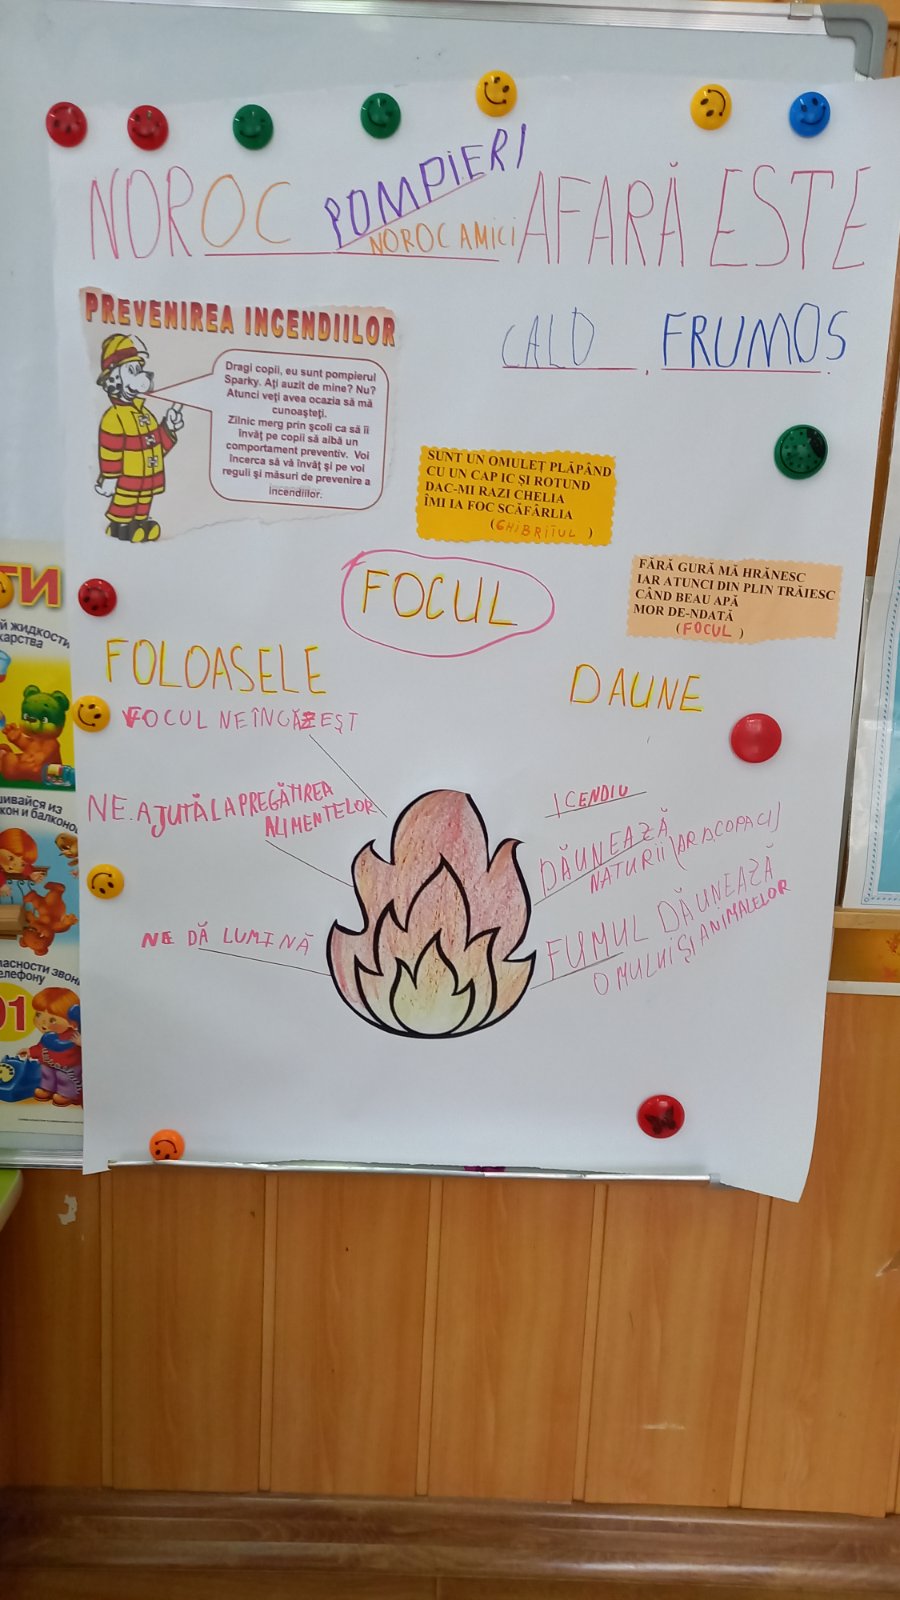 NOROC POMPIERI AFARĂ ESTE
NOROC AMICI
CALD, FRUMOS.
PREVENIREA INCENDIILOR
Dragi copii, eu sunt pompierul
Sparky. Aţi auzit de mine? Nu?
Atunci veţi avea ocazia să mă
cunoaşteţi.
Zilnic merg prin şcoli ca să îi
învăţ pe copii să aibă un
comportament preventiv. Voi
încerca să vă învăţ şi pe voi
reguli şi măsuri de prevenire a
incendiilor.
SUNT UN OMULEȚ PLĂPÂND
CU UN CAP IC ȘI ROTUND
DAC-MI RAZI CHELIA
ÎMI IA FOC SCĂFÂRLIA
(GHIBRITUL)
FĂRĂ GURĂ MĂ HRĂNESC
IAR ATUNCI DIN PLIN TRĂIESC
CÂND BEAU APĂ
MOR DE-NDATĂ
(FOCUL)
FOCUL
FOLOASELE
FOCUL NE ÎNCĂZEȘT
NE.AJUTĂ LA PREGĂTIREA
ALIMENTELOR
NE DĂ LUMINĂ
DAUNE
ICENDIU
DĂUNEAZĂ
NATURII (ARD COPACI)
FUMUL DĂUNEAZĂ
OMULUI ȘI ANIMALELOR
ТИ
й жидкости
карства
шивайся из
кон и балконо
пасности звон
елефону
01